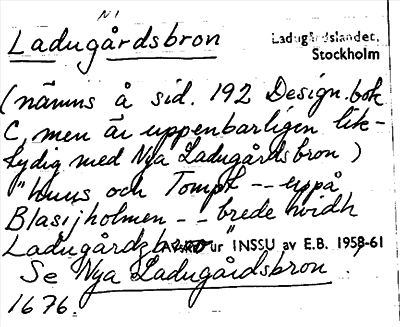 Ladugårdsbron
Ladugårdslandet,
Stockholm
(nämns å sid. 192 Design.bok
C, men är uppenbarligen lik-
tydig med Nya Ladugårdsbron)
"huus och Tompt -- uppå
Blasijholmen -- brede widh
Ladugårdzbroo" ur INSSU av E.B. 1958-61
Se Nya Ladugårdsbron.
1676.